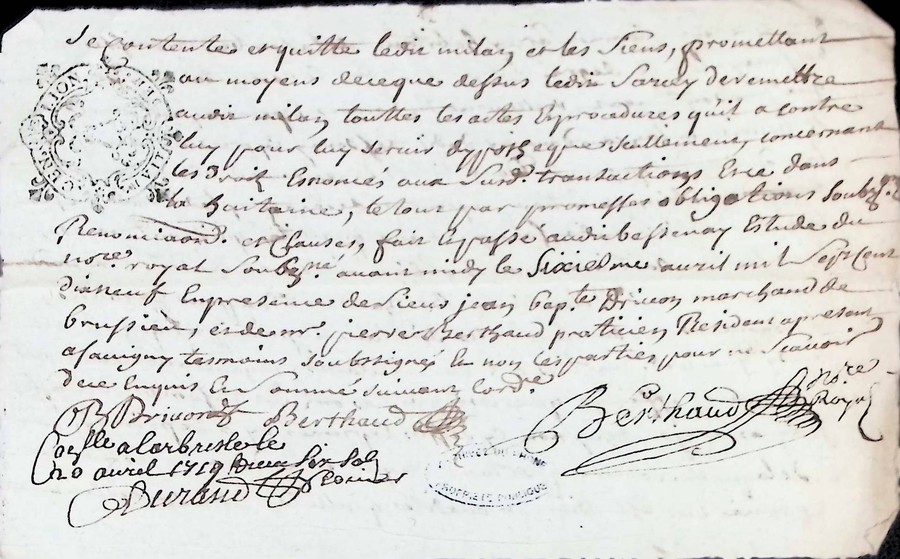 se contente et quitte ledit milan et les siens, promettant
au moyens de ceque dessus ledit Sarcey de remettre
audit milan, touttes les actes & procedures qu'il a contre
luy pour luy servir dypotheque seullement, concernant
les droits Enoncés aux susd. transactions, & ce dans
la huitaine, le tout par promesses obligations soubz.
Renonciaons. et clauses, fait & passé audit bessenay Estude du
no.re royal soub.né avant midy le sixiesme avril mil sept cent
dixneuf En presence de sieur jean bap.te Drivon marchand de
brussieu, et de m.r pierre Berthaud praticien, Resident apresent
a savigny tesmoins soubssignés & non les parties pour ne scavoir
de ce Enquis & sommé suivant lord.e
JB Drivon Berthaud
Berthaud no.re Royal
Con.lle a larbresle le
20 avril 1719 Receu six sols
Durand
GENERALITE LION
PROPRIETE PUBLIQUE